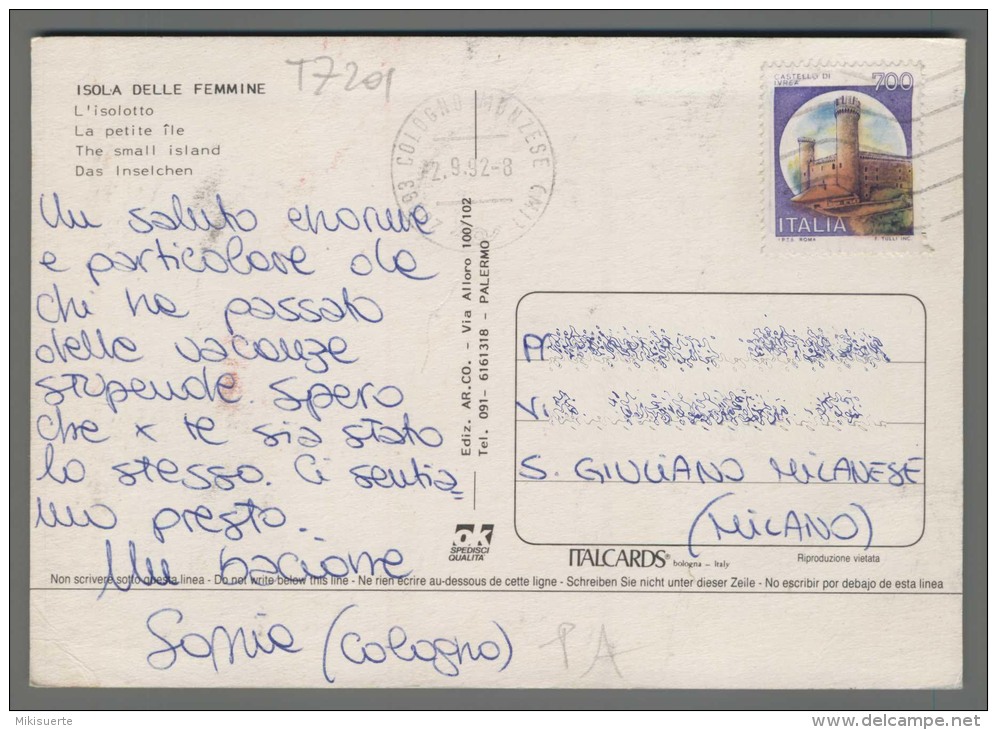 ISOLA DELLE FEMMINE
L'isolotto
La petite île
The small island
Das Inselchen
T7201
COLOGNO MONZESE (MI)
2.9.92-8
CASTELLO DI
IVREA
700
ITALIA
ROMA
Un saluto enorme
e particolare da
chi ha passato
delle vacanze
stupende. Spero
che x te sia stato
lo stesso. Ci sentia=
mo presto.
Un bacione
Sonia (Cologno)
PA
Ediz. AR.CO. - Via Alloro 100/102
Tel. 091- 6161318 - PALERMO
S. GIULIANO MILANESE
(MILANO)
ok
SPEDISCI
QUALITA'
ITALCARDS® bologna - Italy
Riproduzione vietata
Non scrivere sotto questa linea - Do not write below this line - Ne rien écrire au-dessous de cette ligne - Schreiben Sie nicht unter dieser Zeile - No escribir por debajo de esta linea
Mikisuerte
www.delcampe.net